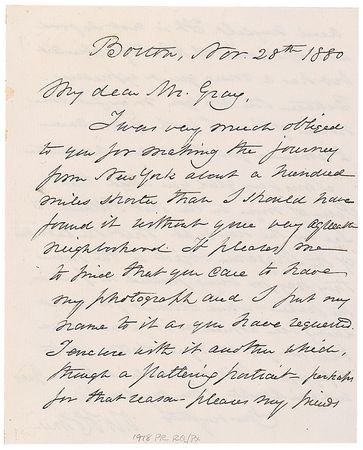 Boston, Nov. 28th 1880
My dear Mr. Gray,
I was very much obliged
to you for making the journey
from New York about a hundred
miles shorter than I should have
found it without your very agreeable
neighborhood It pleases me
to find that you care to have
my photograph and I put my
name to it as you have requested
I enclose with it another which,
though a flattering portrait - perhaps
for that reason - pleases my friends